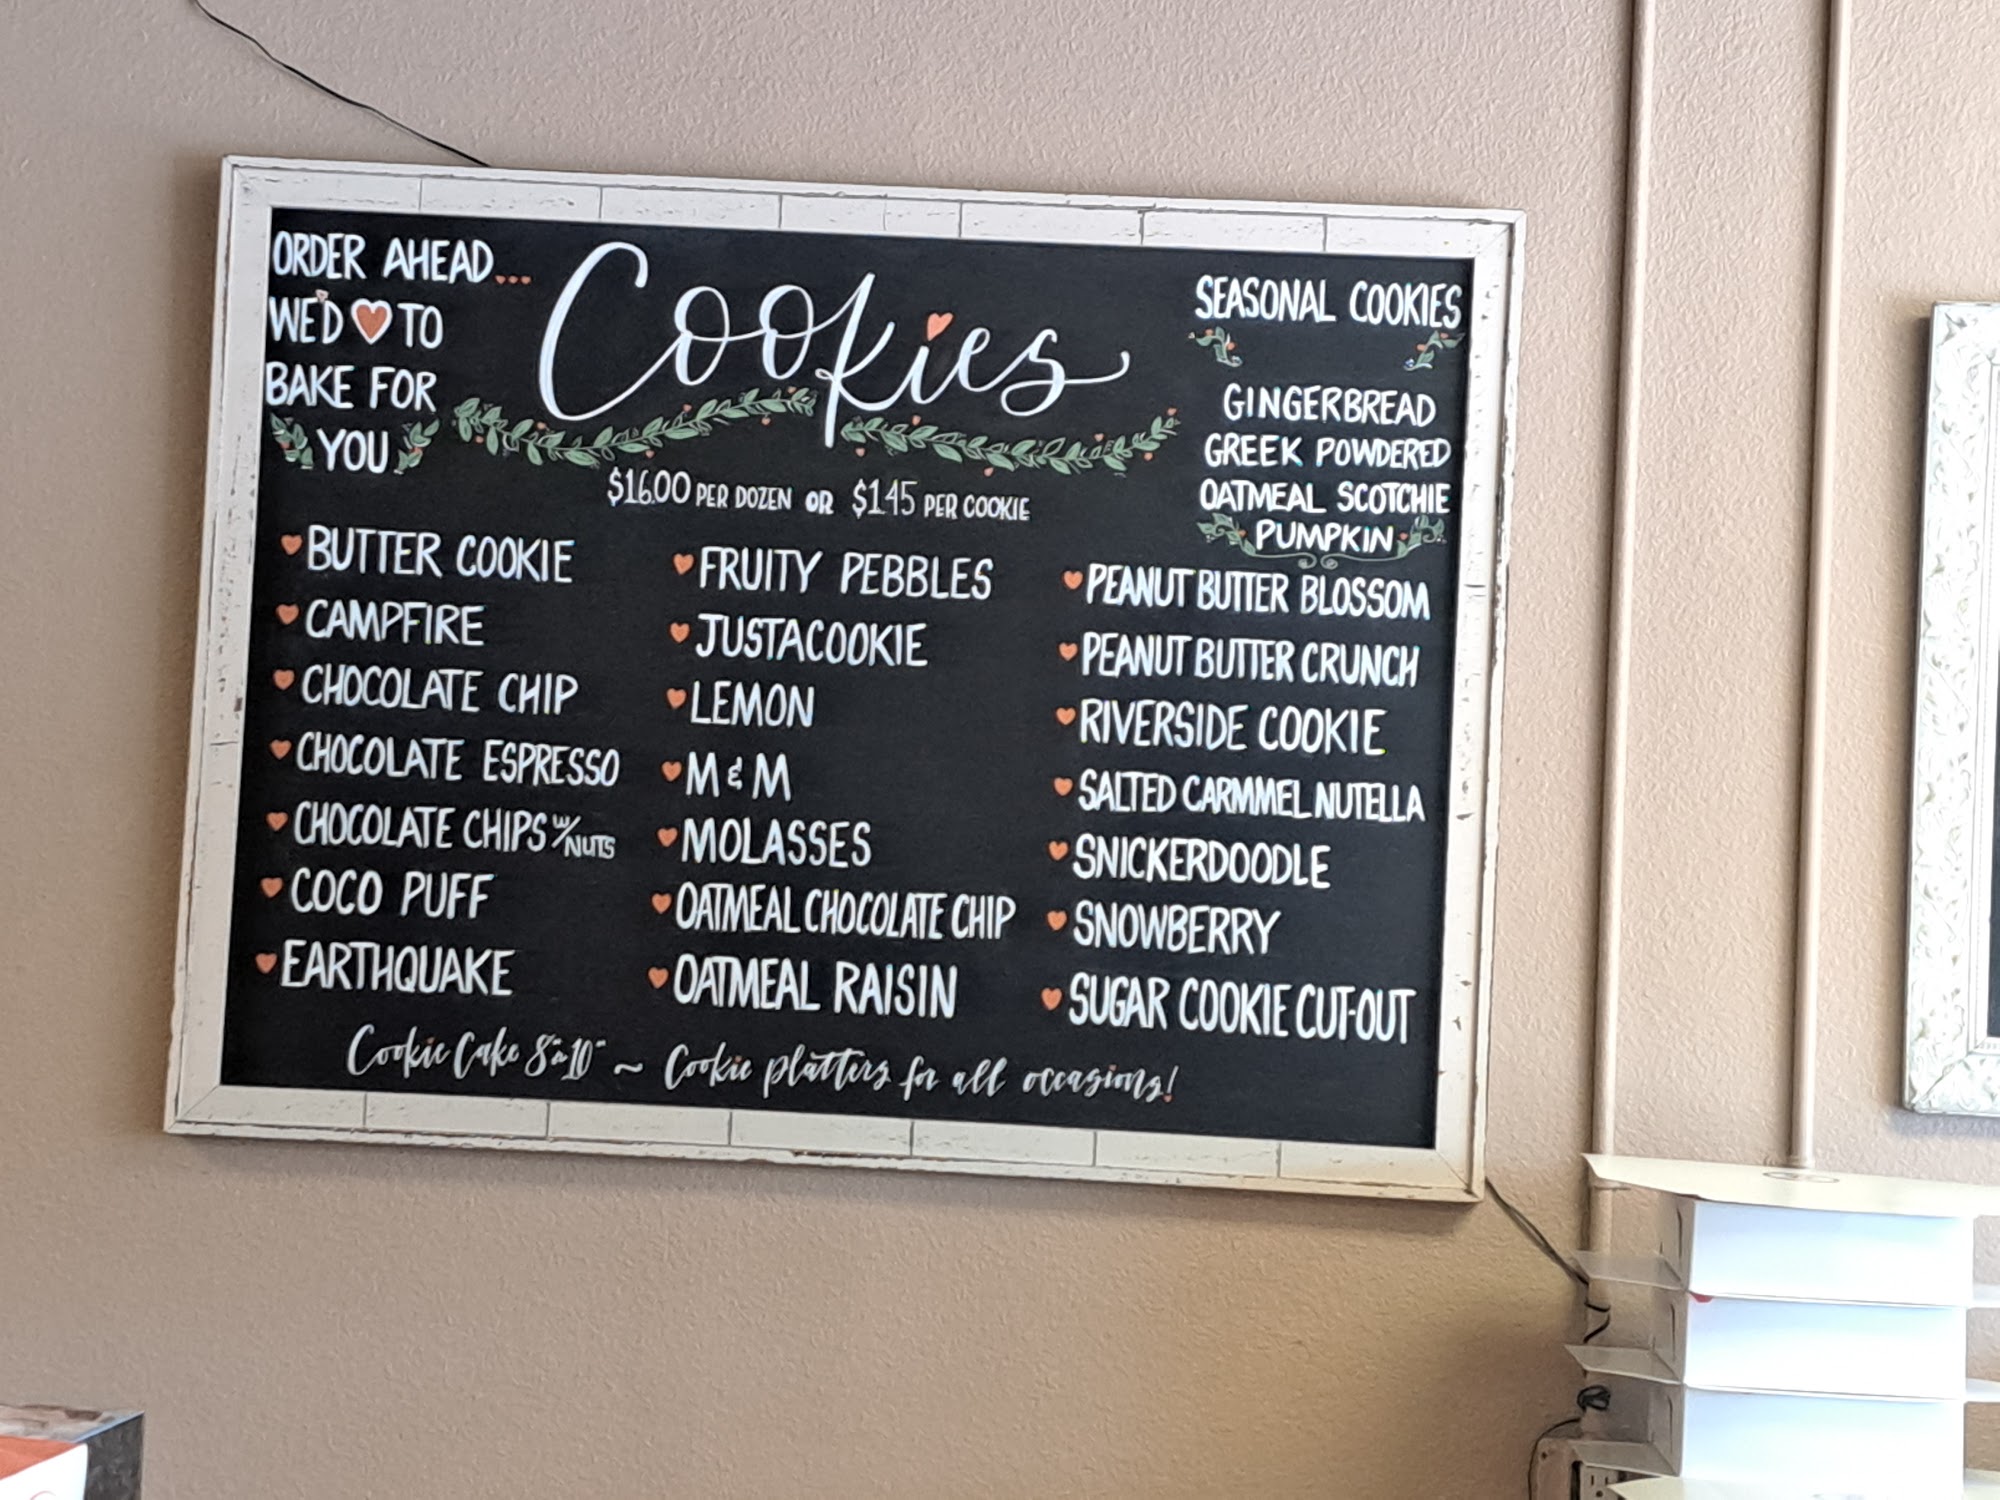 ORDER AHEAD...
WE'D TO
BAKE FOR
YOU
Cookies
$16.00 PER DOZEN OR $1.45 PER COOKIE
SEASONAL COOKIES
GINGERBREAD
GREEK POWDERED
OATMEAL SCOTCHIE
PUMPKIN
BUTTER COOKIE
CAMPFIRE
CHOCOLATE CHIP
CHOCOLATE ESPRESSO
CHOCOLATE CHIPS W/ NUTS
COCO PUFF
EARTHQUAKE
FRUITY PEBBLES
JUSTACOOKIE
LEMON
M & M
MOLASSES
OATMEAL CHOCOLATE CHIP
OATMEAL RAISIN
PEANUT BUTTER BLOSSOM
PEANUT BUTTER CRUNCH
RIVERSIDE COOKIE
SALTED CARMMEL NUTELLA
SNICKERDOODLE
SNOWBERRY
SUGAR COOKIE CUT-OUT
Cookie Cake 8" or 10" ~ Cookie platters for all occasions!